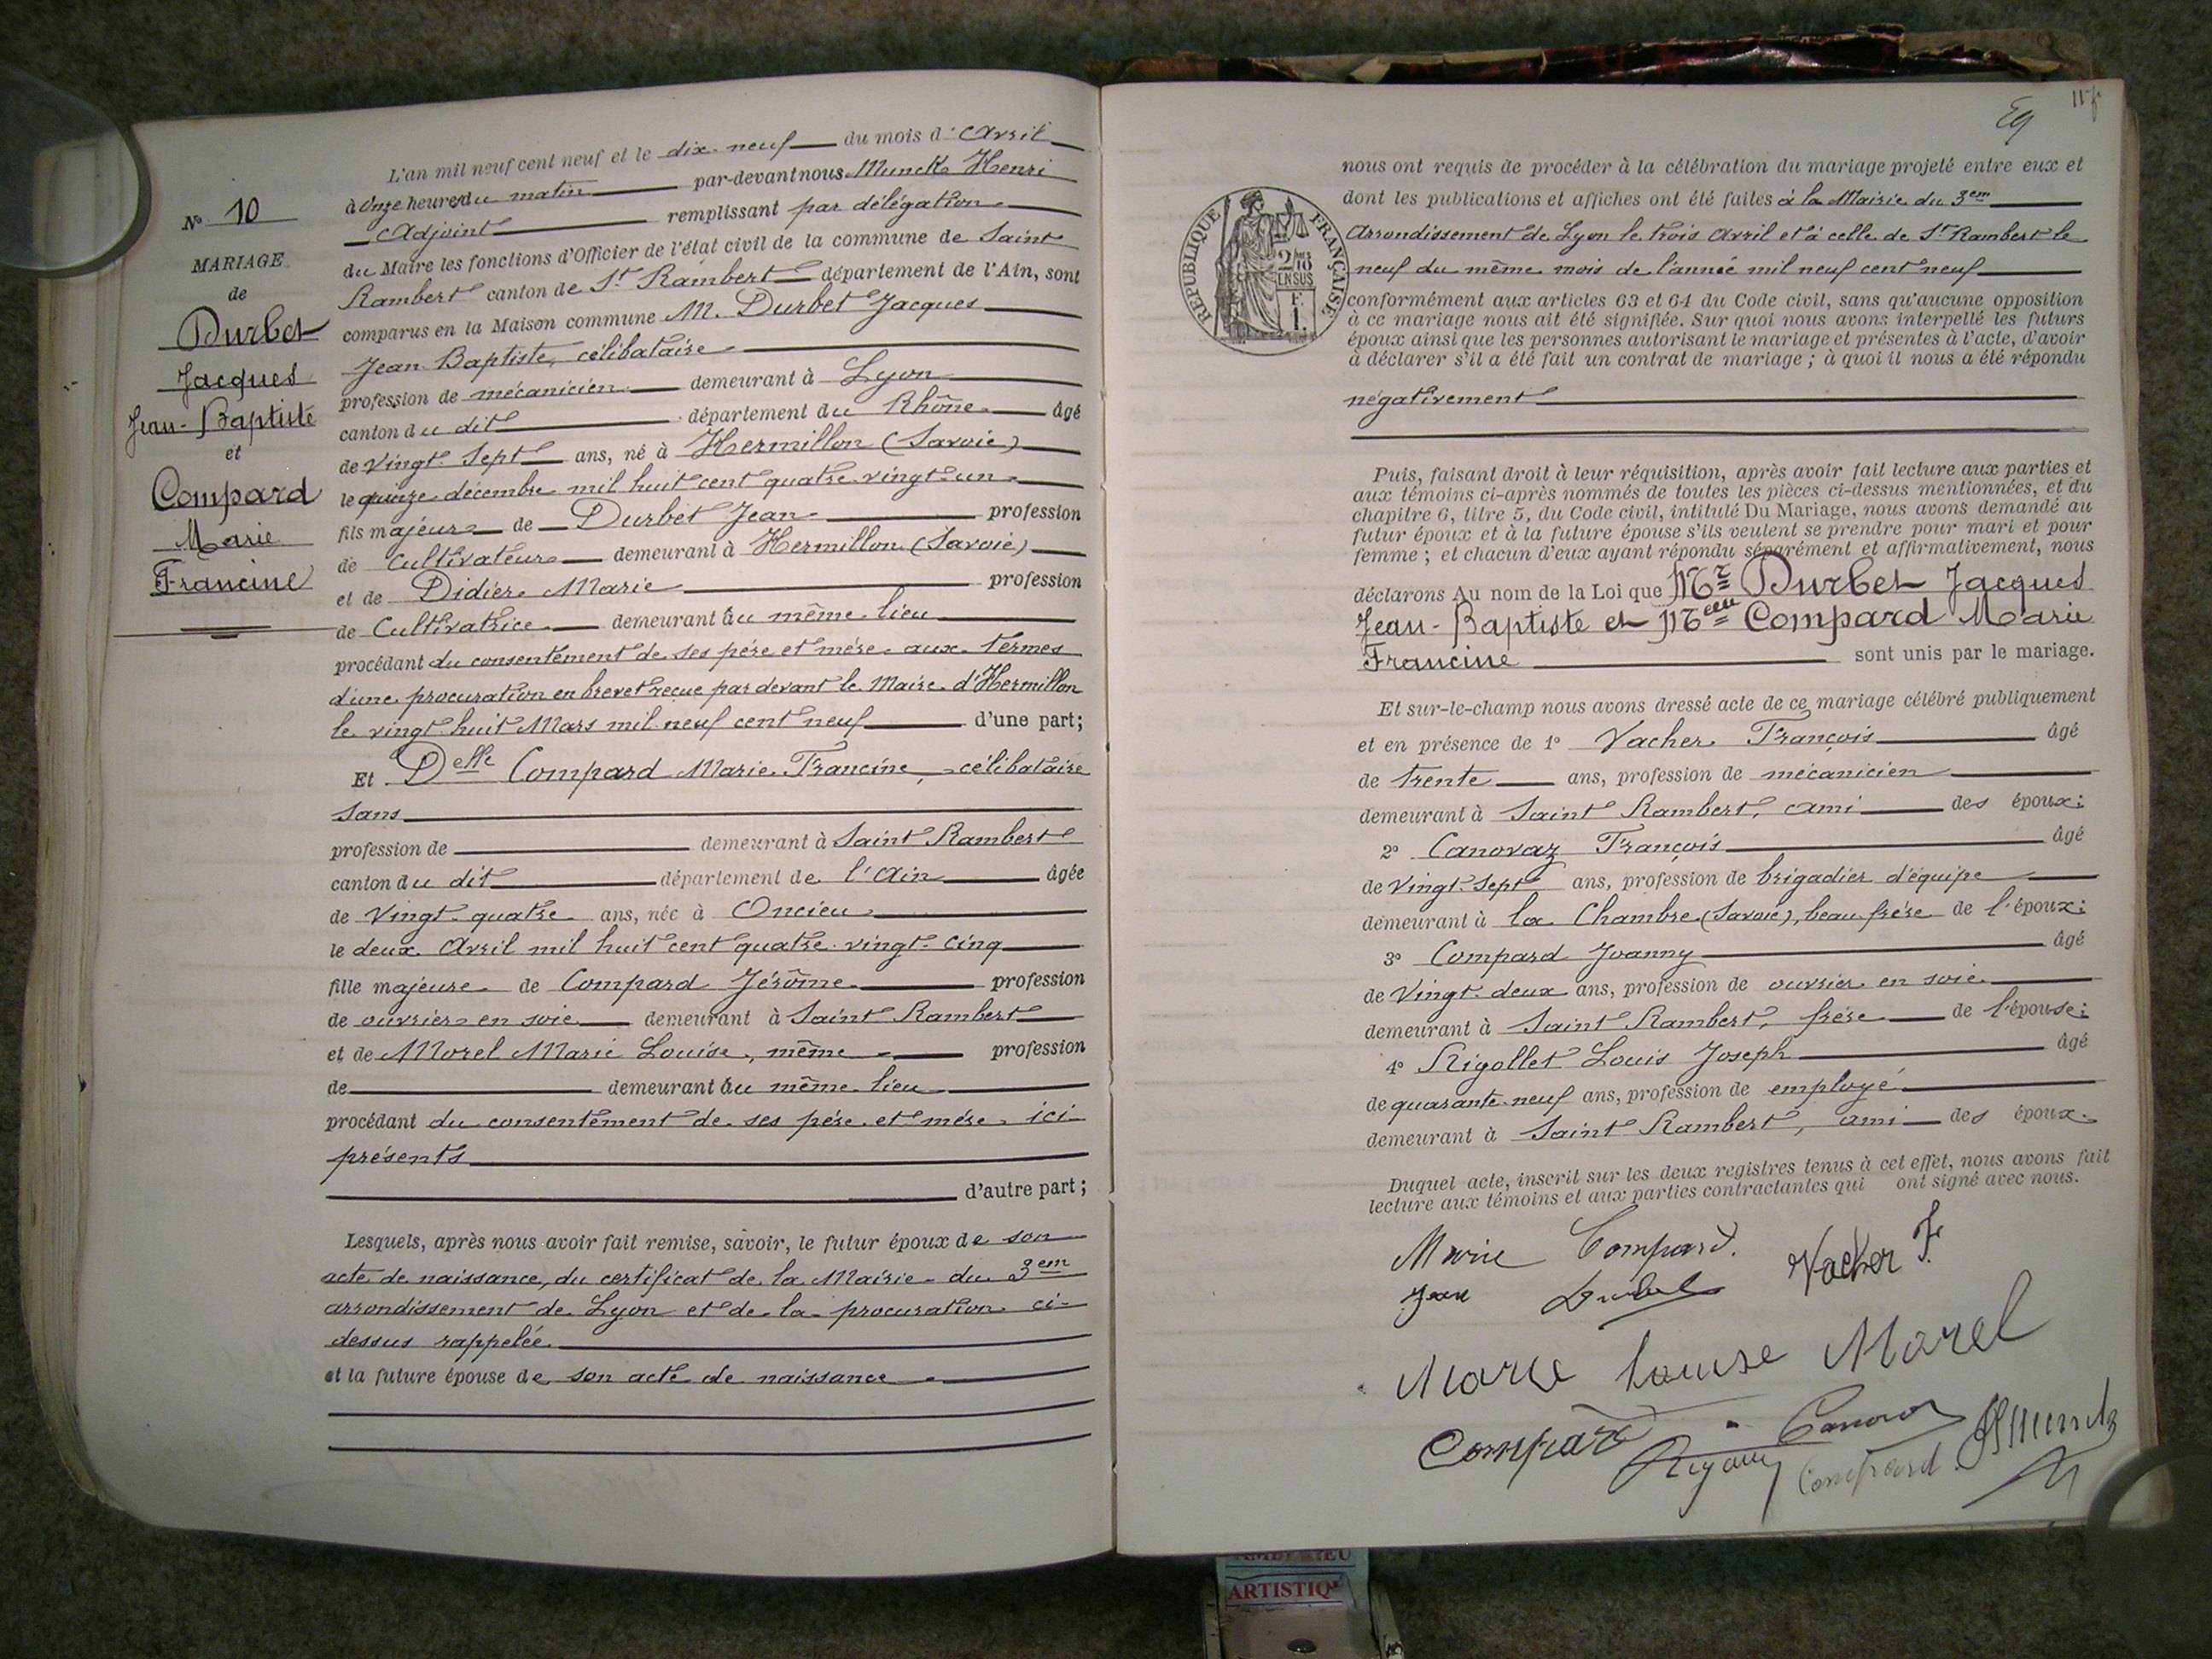 N° 10
MARIAGE
de
Durbet
Jacques
Jean-Baptiste
et
Compard
Marie
Francine
L'an mil neuf cent neuf et le dix-neuf du mois d'Avril
à onze heures du matin par-devant nous Munck Henri
Adjoint remplissant par délégation
du Maire les fonctions d'Officier de l'état civil de la commune de Saint
Rambert canton de St Rambert département de l'Ain, sont
comparus en la Maison commune M. Durbet Jacques
Jean Baptiste, célibataire
profession de mécanicien demeurant à Lyon
canton du dit département du Rhône âgé
de Vingt-Sept ans, né à Hermillon (Savoie)
le quinze décembre mil huit cent quatre vingt-un
fils majeur de Durbet Jean profession
de Cultivateur demeurant à Hermillon (Savoie)
et de Didier Marie profession
de Cultivatrice demeurant au même lieu
procédant du consentement de ses père et mère aux termes
d'une procuration en brevet reçue par devant le Maire d'Hermillon
le vingt-huit Mars mil neuf cent neuf d'une part;
Et Delle Compard Marie Francine, célibataire
sans
profession de demeurant à Saint Rambert
canton du dit département de l'Ain âgée
de Vingt-quatre ans, née à Oncieu
le deux Avril mil huit cent quatre-vingt-cinq
fille majeure de Compard Jérôme profession
de ouvrier en soie demeurant à Saint Rambert
et de Morel Marie Louise, même profession
de demeurant au même lieu
procédant du consentement de ses père et mère ici
présents
d'autre part;
Lesquels, après nous avoir fait remise, savoir, le futur époux de son
acte de naissance, du certificat de la Mairie du 3em
arrondissement de Lyon et de la procuration ci-
dessus rappelée
et la future épouse de son acte de naissance
nous ont requis de procéder à la célébration du mariage projeté entre eux et
dont les publications et affiches ont été faites à la Mairie du 3em
Arrondissement de Lyon le trois Avril et à celle de St Rambert le
neuf du même mois de l'année mil neuf cent neuf
RÉPUBLIQUE FRANÇAISE
conformément aux articles 63 et 64 du Code civil, sans qu'aucune opposition
à ce mariage nous ait été signifiée. Sur quoi nous avons interpellé les futurs
époux ainsi que les personnes autorisant le mariage et présentes à l'acte, d'avoir
à déclarer s'il a été fait un contrat de mariage; à quoi il nous a été répondu
négativement
Puis, faisant droit à leur réquisition, après avoir fait lecture aux parties et
aux témoins ci-après nommés de toutes les pièces ci-dessus mentionnées, et du
chapitre 6, titre 5, du Code civil, intitulé Du Mariage, nous avons demandé au
futur époux et à la future épouse s'ils veulent se prendre pour mari et pour
femme; et chacun d'eux ayant répondu séparément et affirmativement, nous
déclarons Au nom de la Loi que Mr Durbet Jacques
Jean-Baptiste et Melle Compard Marie
Francine sont unis par le mariage.
Et sur-le-champ nous avons dressé acte de ce mariage célébré publiquement
et en présence de 1° Vacher François âgé
de trente ans, profession de mécanicien
demeurant à Saint Rambert, ami des époux;
2° Canovaz François âgé
de Vingt-sept ans, profession de brigadier d'équipe
demeurant à la Chambre (Savoie), beau-frère de l'époux;
3° Compard Joanny âgé
de Vingt-deux ans, profession de ouvrier en soie
demeurant à Saint Rambert, frère de l'épouse;
4° Rigollet Louis Joseph âgé
de quarante-neuf ans, profession de employé
demeurant à Saint Rambert, ami des époux
Duquel acte, inscrit sur les deux registres tenus à cet effet, nous avons fait
lecture aux témoins et aux parties contractantes qui ont signé avec nous.
Marie Compard.
Vacher F
Jean Durbet
Marie Louise Morel
Compard
Compard
HMunck
ARTISTIQ